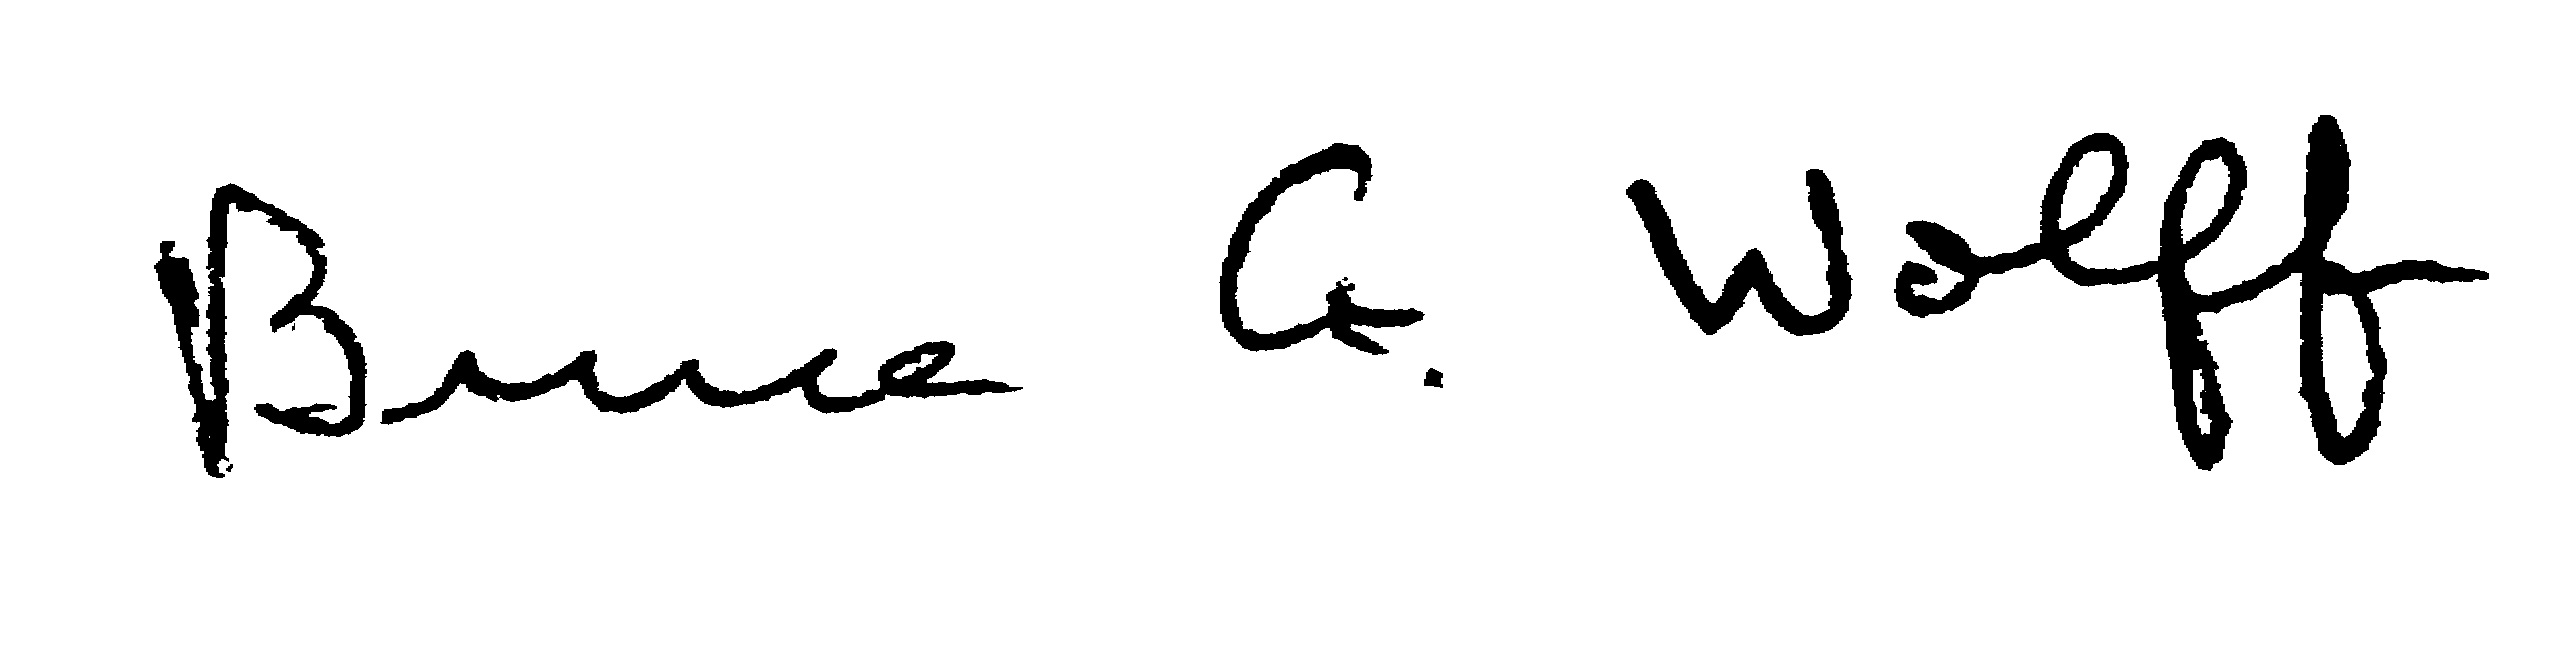 Bruce G. Wolff